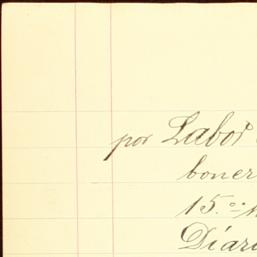 por Labor
boner
15.
Diari